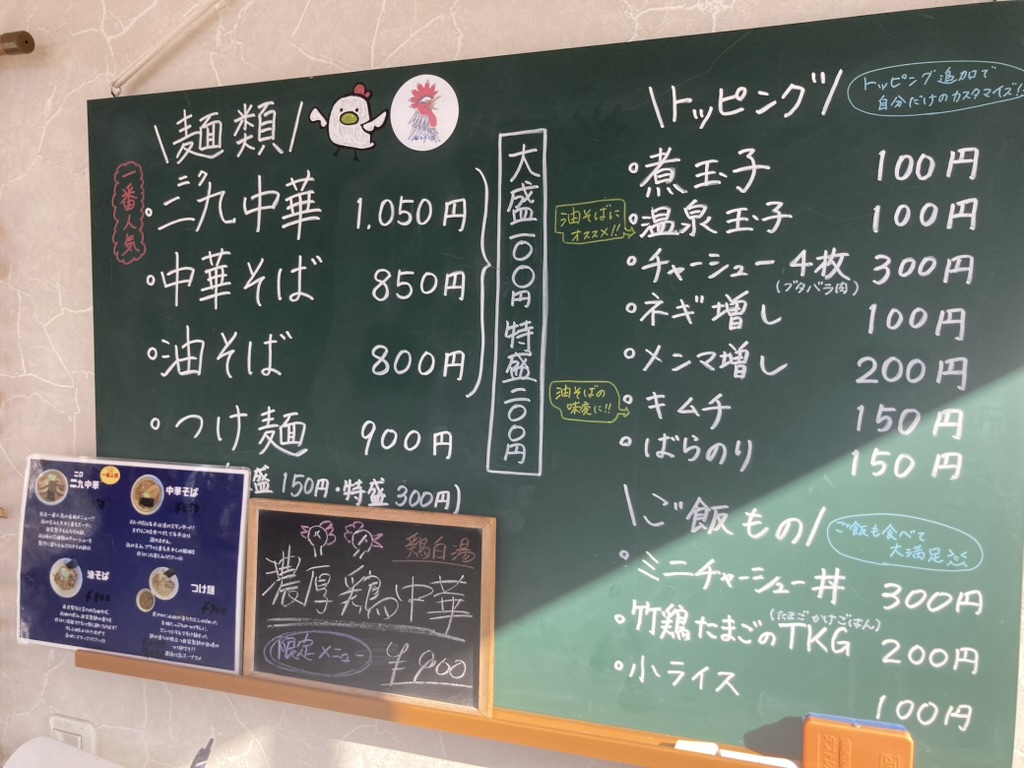 \麺類/
一番人気
ニク
・二九中華 1.050円
・中華そば 850円
・油そば 800円
大盛一〇〇円 特盛二〇〇円
・つけ麺 900円
盛150円・特盛300円)
\トッピング/
トッピング追加で
自分だけのカスタマイズ!!
・煮玉子 100円
油そばに
オススメ!!
・温泉玉子 100円
・チャーシュー4枚 300円
(ブタバラ肉)
・ネギ増し 100円
・メンマ増し 200円
油そばの
味変に!!
・キムチ 150円
・ばらのり 150円
\ご飯もの/
ご飯も食べて
大満足
・ミニチャーシュー丼 300円
(たまごかけごはん)
・竹鶏たまごのTKG 200円
・小ライス 100円
二九中華
中華そば
油そば
¥800
つけ麺
¥900
鶏白湯
濃厚鶏中華
限定メニュー
¥900